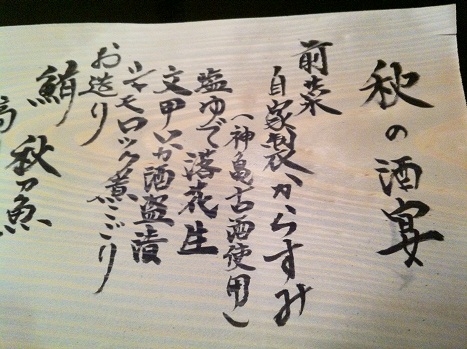 秋の酒宴
前菜
自家製からすみ
(神亀古酒使用)
塩ゆで落花生
文甲いか酒盗漬
シャモロック煮こごり
お造り
鮪 秋刀魚